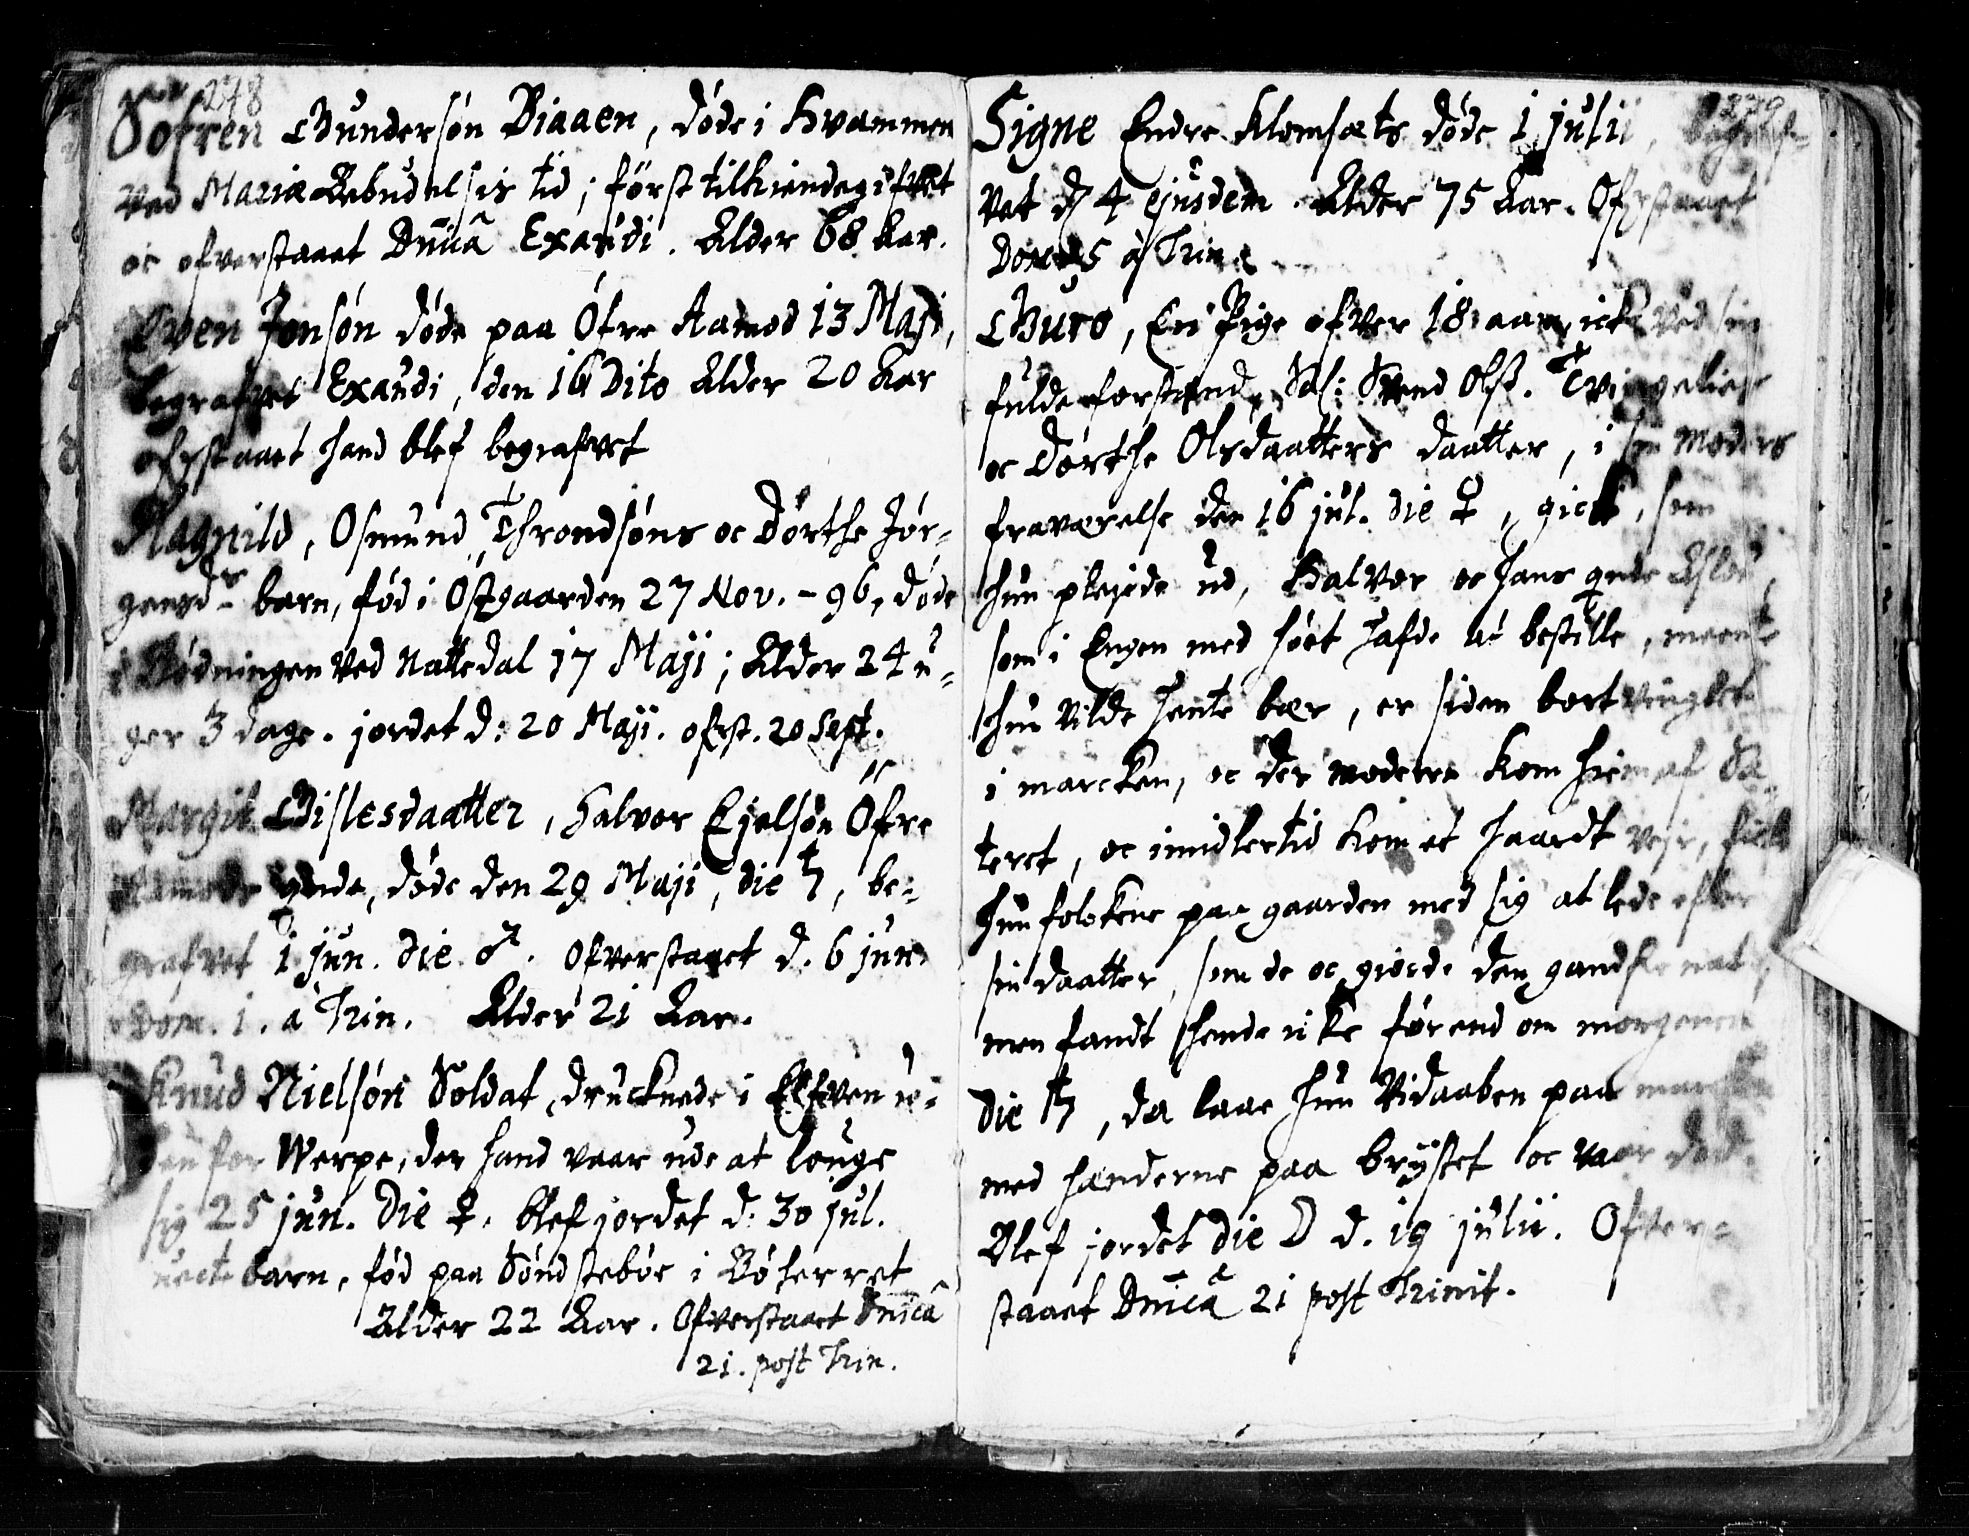 248
Søfren Gundersøn Biaaen, døde i Hvammen
ved Mariæ Bebudelsis tid; først tilkiendegifvet
oc ofverstaaet Dnicâ Exaudi. Alder 68 Aar.
Even Jonsøn døde paa Øfre Aamod 13 Maji,
begrafvet Exaudi, den 16 Dito Alder 20 Aar
ofrstaaet hand blef begrafvet
Ragnild, Osmund Throndsøns oc Dorthe Jør-
gensd- barn, fød i Østgaarden 27 Nov. - 96, døde
i Bødningen ved Nattedal 17 Maji; Alder 24 u-
ger 3 dage. jordet d: 20 Maji. ofrst. 20 Sept.
Margit Gislesdaatter, Halvor Ejelsøn Øfre
Aamods qvinde, døde den 29 Maji, die ♄, be-
grafvet 1 jun. die ♂. Ofverstaaet d. 6 jun.
Dom. 1. a Trin. Alder 21 Aar.
Knud Nielsøn Soldat, drucknede i Elfven ne-
den for Werpe, der hand vaar ude at louge
sig 25 jun. Die ♀. blef jordet d: 30 jul.
uecte barn, fød paa Søndstebøe i Bøherret
Alder 22 Aar. Ofverstaaet Dnicâ
21. post Trin.
279
Signe Endre Klomsæts døde 1 julii, begraf-
vet d 4 ejusdem. Alder 75 Aar. Ofrstaaet
Dom 5 a Trin.
Guro, En Pige ofver 18 aar, icke ved sin
fulde forstand, Sal: Svend Ols.
oc Dorthe Olsdaatters daatter, i sin Moders
fraværelse den 16 jul. die ♀, gick, som
hun plejede ud, Halvor oc hans qvinde Aslou,
som i Engen med høet hafde at bestille, meente
hun vilde hente bær, er siden bortvinglet
i marcken, oc der moderen kom hiem af Sæ-
teret, oc imidlertid kom et haardt vejr, fick
hun folckene paa gaarden med sig at lede efter
sin daatter, som de oc giorde den gandske nat,
men fandt hende icke førend om morgenen
die ♄, da laae hun vidaaben paa marcken
med hænderne paa brystet oc vaar død.
Blef jordet die ☽ d. 19 julii. Ofver-
staaet Dnicâ 21 post Trinit.